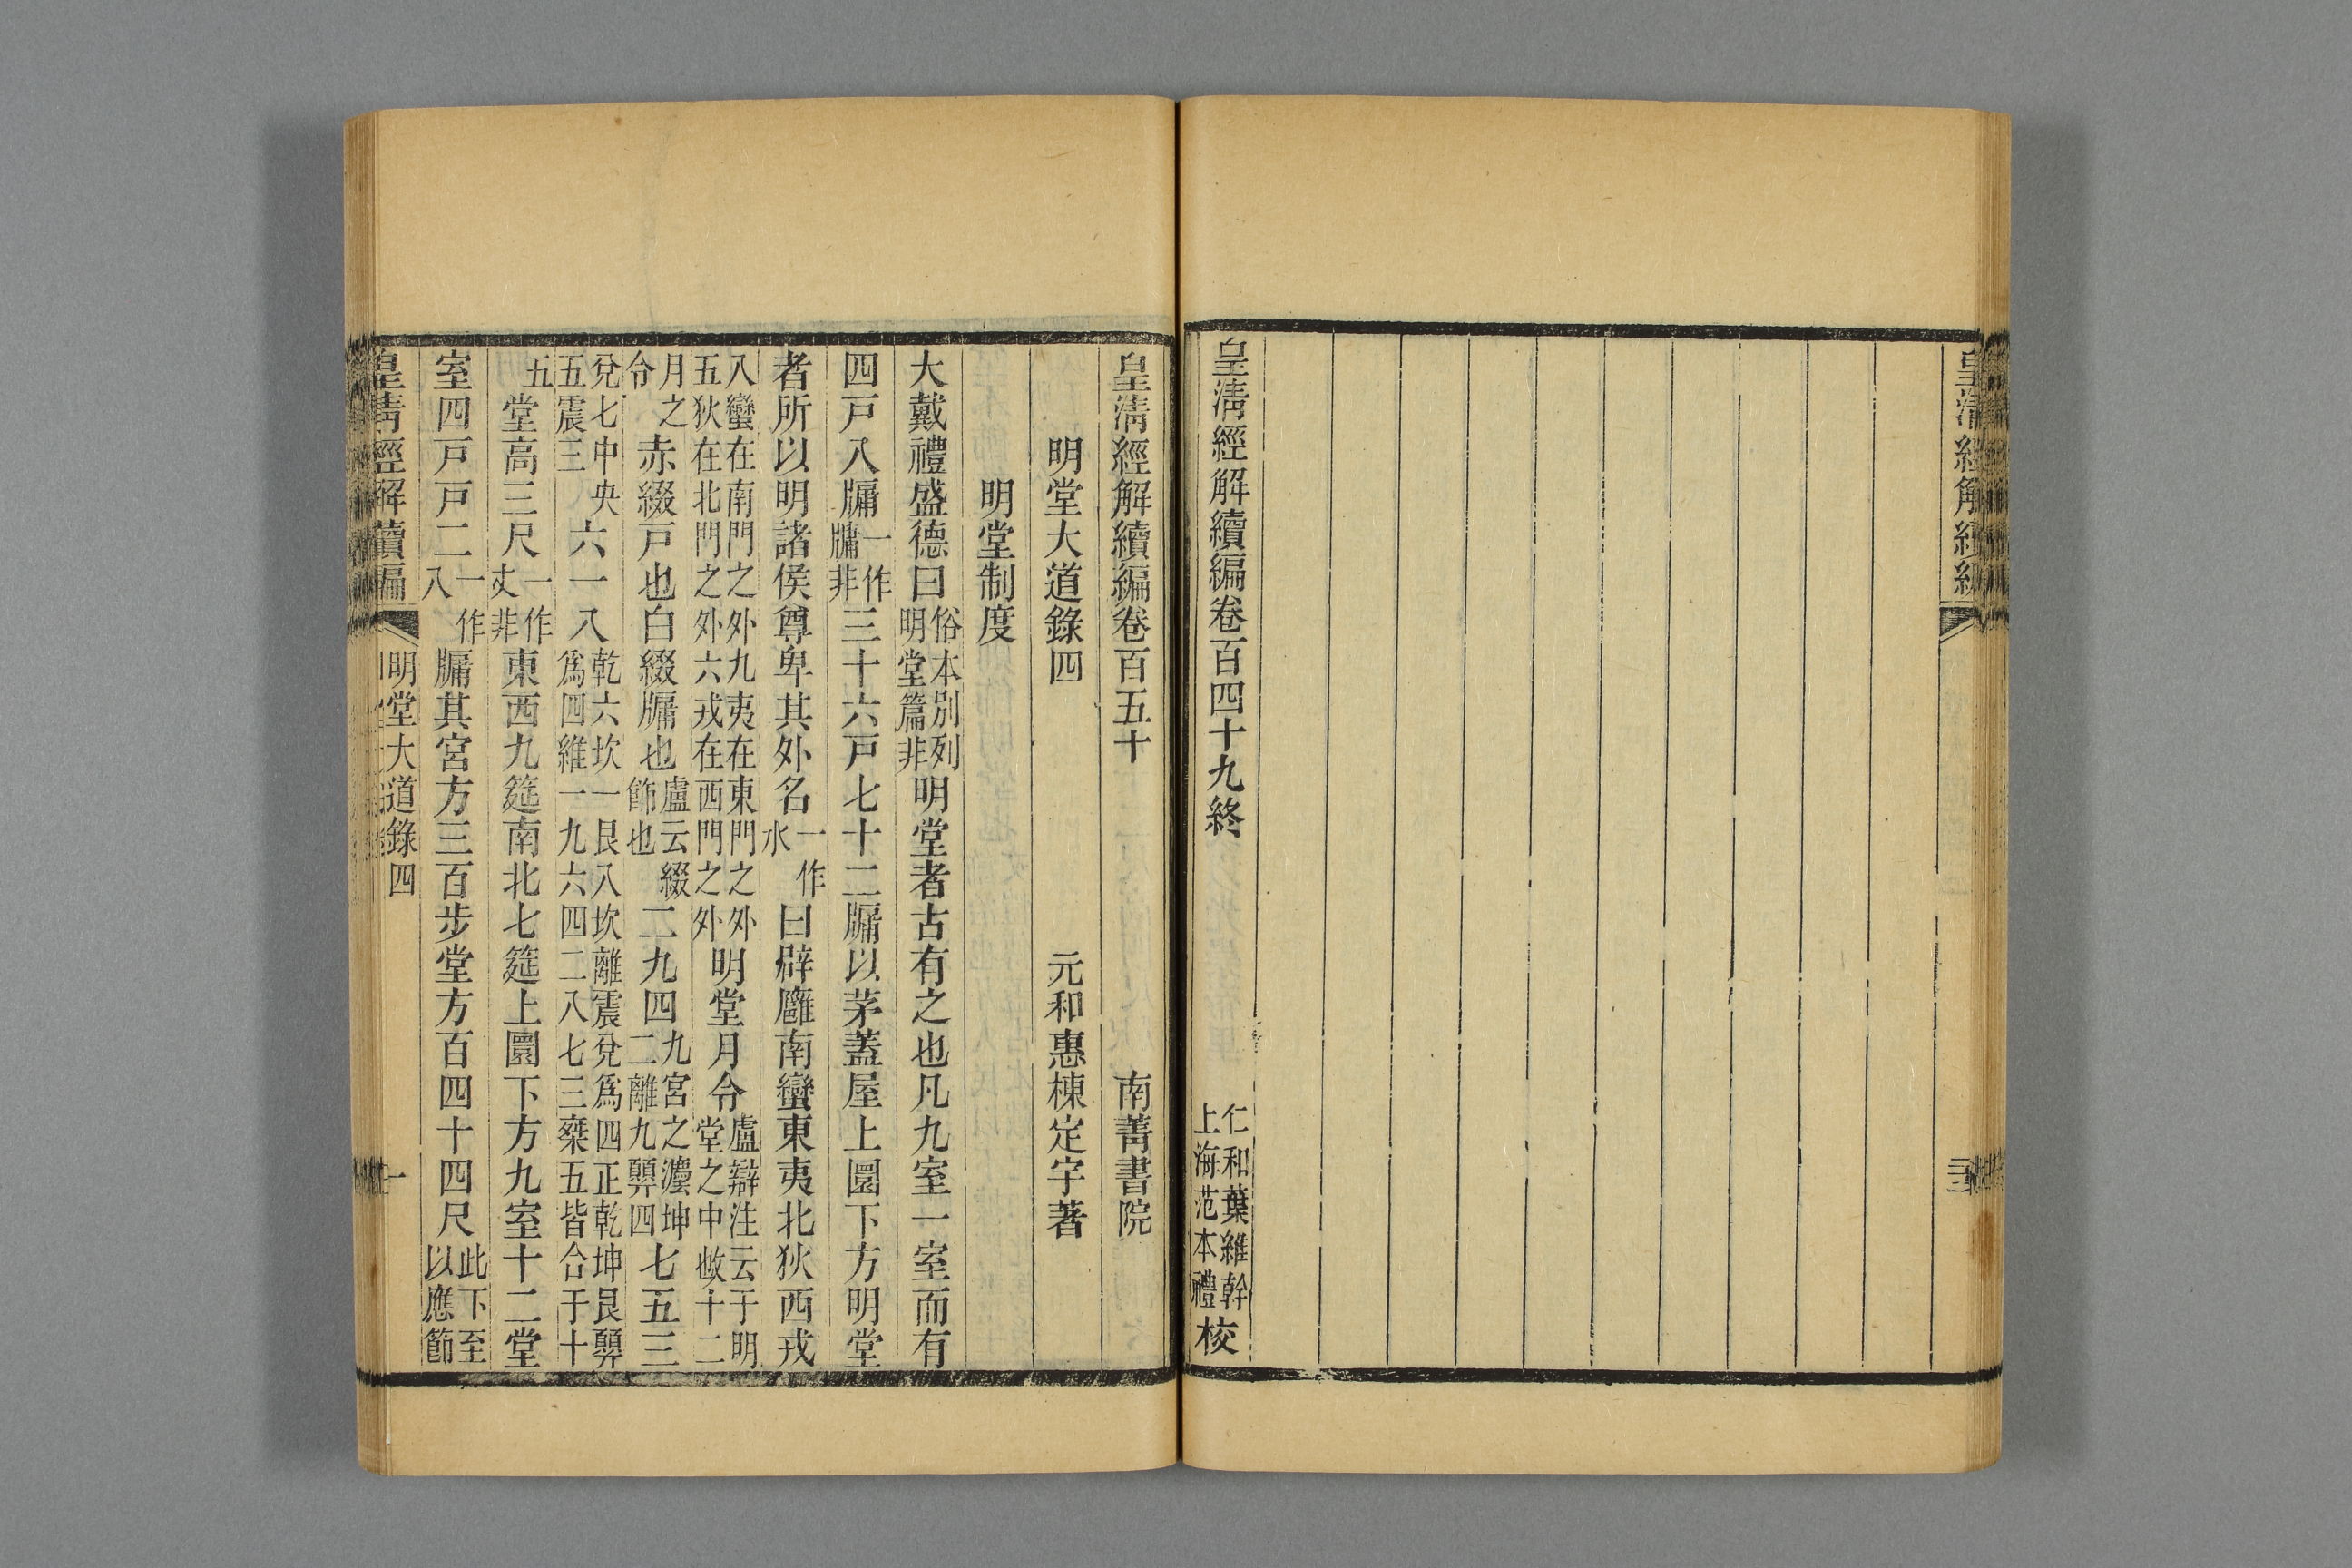 皇清經解續編
三
皇淸經解續編卷百四十九終
仁和葉維幹
上海范本禮
校
皇淸經解續編卷百五十
南菁書院
明堂大道錄四
元和惠棟定宇著
明堂制度
大戴禮盛德曰俗本別列明堂篇非明堂者古有之也凡九室一室而有
四戸八牖一作牗非三十六戸七十二牖以茅蓋屋上圜下方明堂
者所以明諸侯尊卑其外名一作水曰辟廱南蠻東夷北狄西戎
八蠻在南門之外九夷在東門之外五狄在北門之外六戎在西門之外明堂月令盧辯注云于明堂之中敀十二
月之令赤綴戸也白綴牖也盧云綴飾也二九四九宮之灋坤二離九㢲四七五三
兌七中央五震三六一八乾六坎一艮八坎離震兌爲四正乾坤艮㢲爲四維一九六四二八七三桀五皆合于十
五堂高三尺一作丈非東西九筵南北七筵上圜下方九室十二堂
室四戸戸二一作八牖其宮方三百步堂方百四十四尺此下至以應節
皇淸經解續編
明堂大道錄四
一